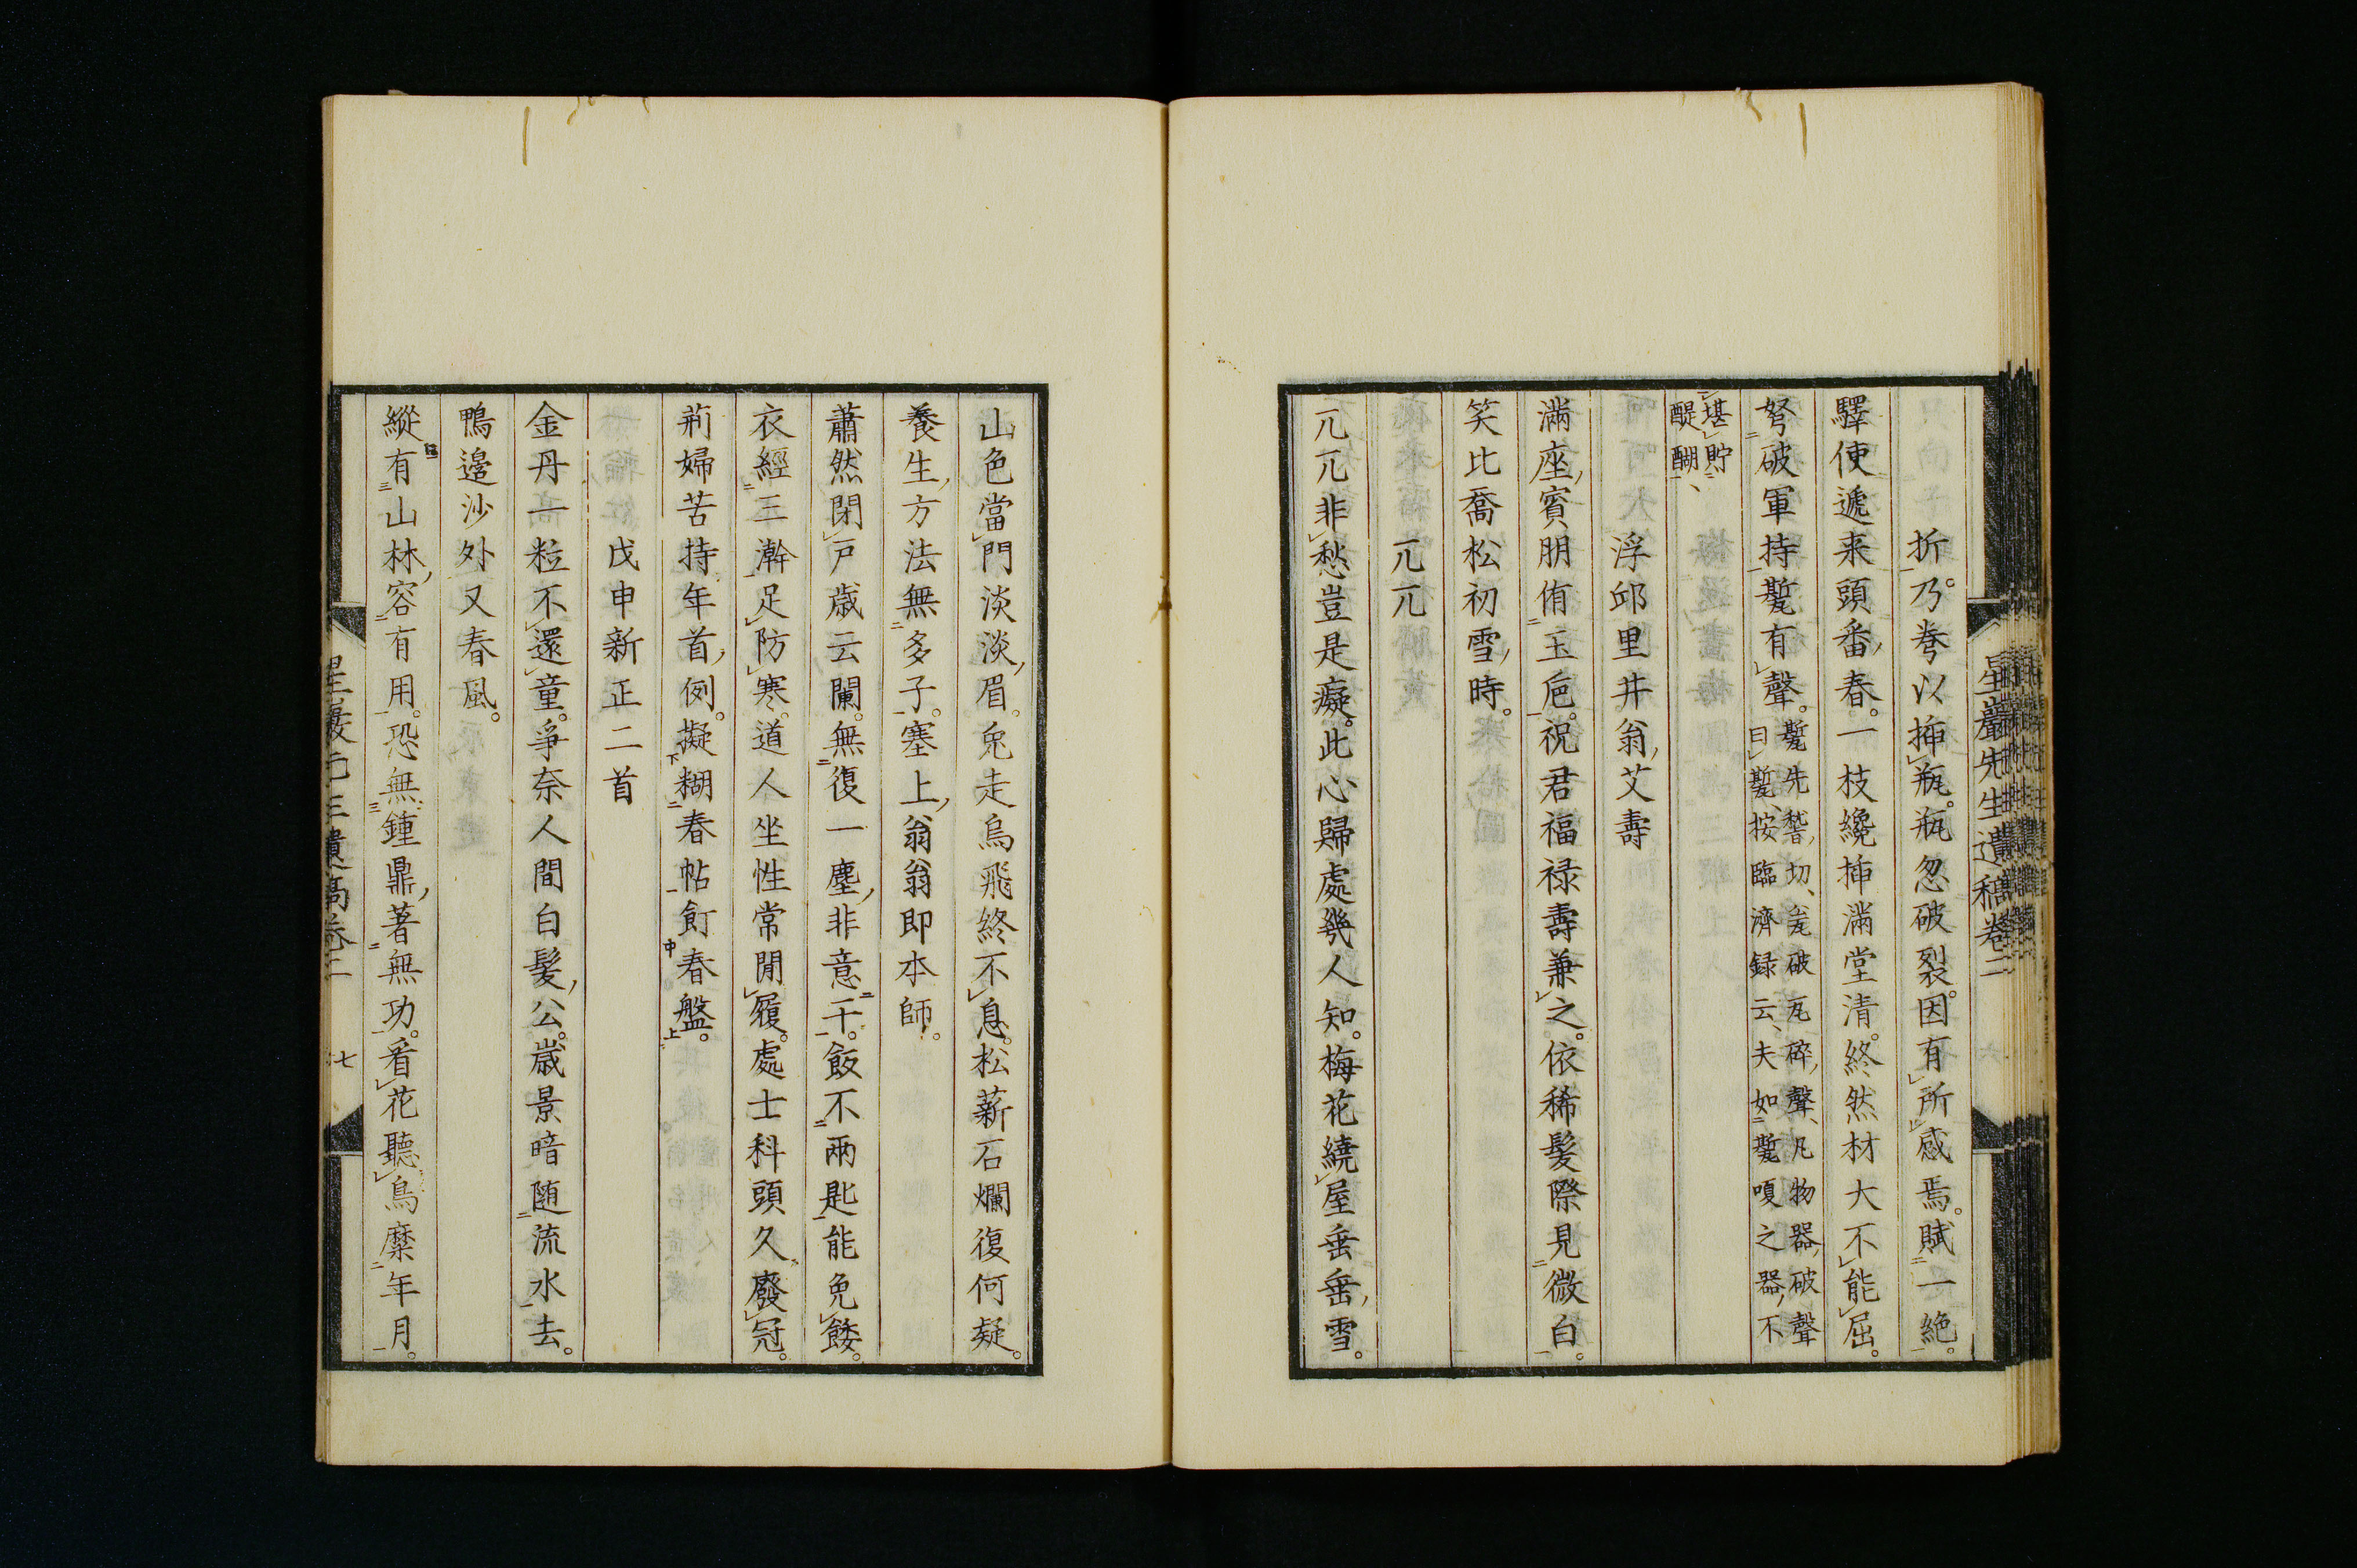 星巖先生遺稿卷二
折乃拳以揷瓶瓶忽破裂因有所感焉賦一絶
驛使遞来頭番春一枝纔揷滿堂清終然材大不能屈
弩破軍持㽄有聲㽄先嵇切瓮破瓦碎聲凡物器破聲
曰㽄按臨濟録云夫如㽄嗄之器不
堪貯
醍醐
浮邱里井翁艾壽
滿座賓朋侑玉巵祝君福禄壽兼之依稀髮際見微白
笑比喬松初雪時
兀兀
兀兀非愁豈是癡此心歸處幾人知梅花繞屋垂垂雪
山色當門淡淡眉兎走烏飛終不息松薪石爛復何疑
養生方法無多子塞上翁翁即本師
蕭然閉戸歳云闌無復一塵非意干飯不兩匙能免餒
衣經三澣足防寒道人坐性常閒履處士科頭久廢冠
荊婦苦持年首例擬糊春帖飣春盤
戊申新正二首
金丹一粒不還童爭奈人間白髮公歳景暗随流水去
鴨邊沙外又春風
縱有山林容有用恐無鍾鼎著無功看花聽鳥糜年月
七